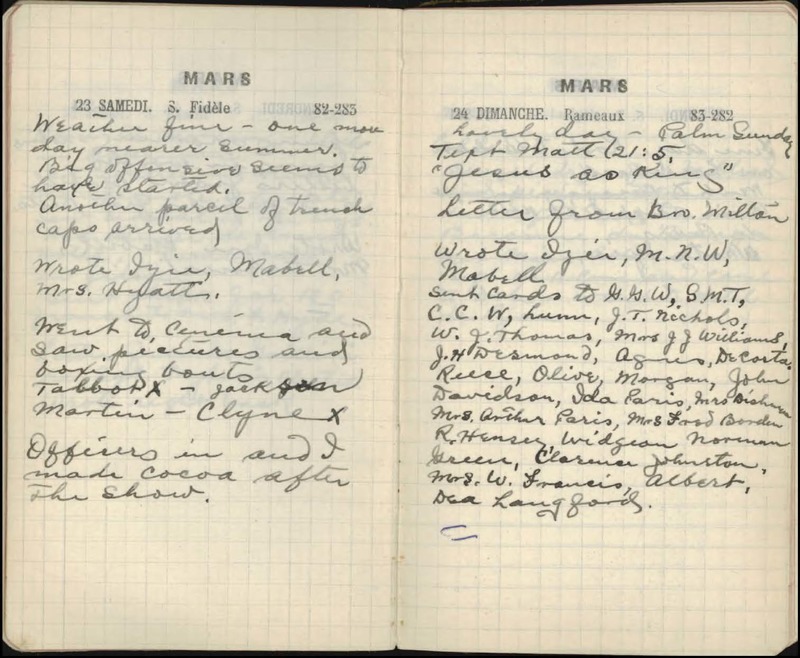 MARS
23 SAMEDI. S. Fidèle 82-283
Weather fine - one more
day nearer summer.
Big offensive seems to
have started.
Another parcel of trench
caps arrived
Wrote Izie, Mabell,
Mrs. Hyatt.
Went to Cenima and
saw pictures and
boxing bouts
Talbot X - Jackson
Martin - Clyne X
Officers in and I
made cocoa after
the show.
MARS
24 DIMANCHE. Rameaux 83-282
Lovely day - Palm Sunday
Text Matt 21:5.
"Jesus as King"
Letter from Bro. Milton
Wrote Izie, M.N.W,
Mabell
Sent Cards to G.G.W, S.M.T,
C.C.W, Lunn, J.T. Nichols,
W.J. Thomas, Mrs J J Williams,
J.H Desmond, Agnes, DeCosta,
Reese, Olive, Morgan, John
Davidson, Ida Paris, Mrs
Mrs. Arthur Paris, Mrs Fred Borden
R. Hensey, Widgeon Norman
Green, Clarence Johnston,
Mrs. W. Francis, Albert,
Dea Langford.